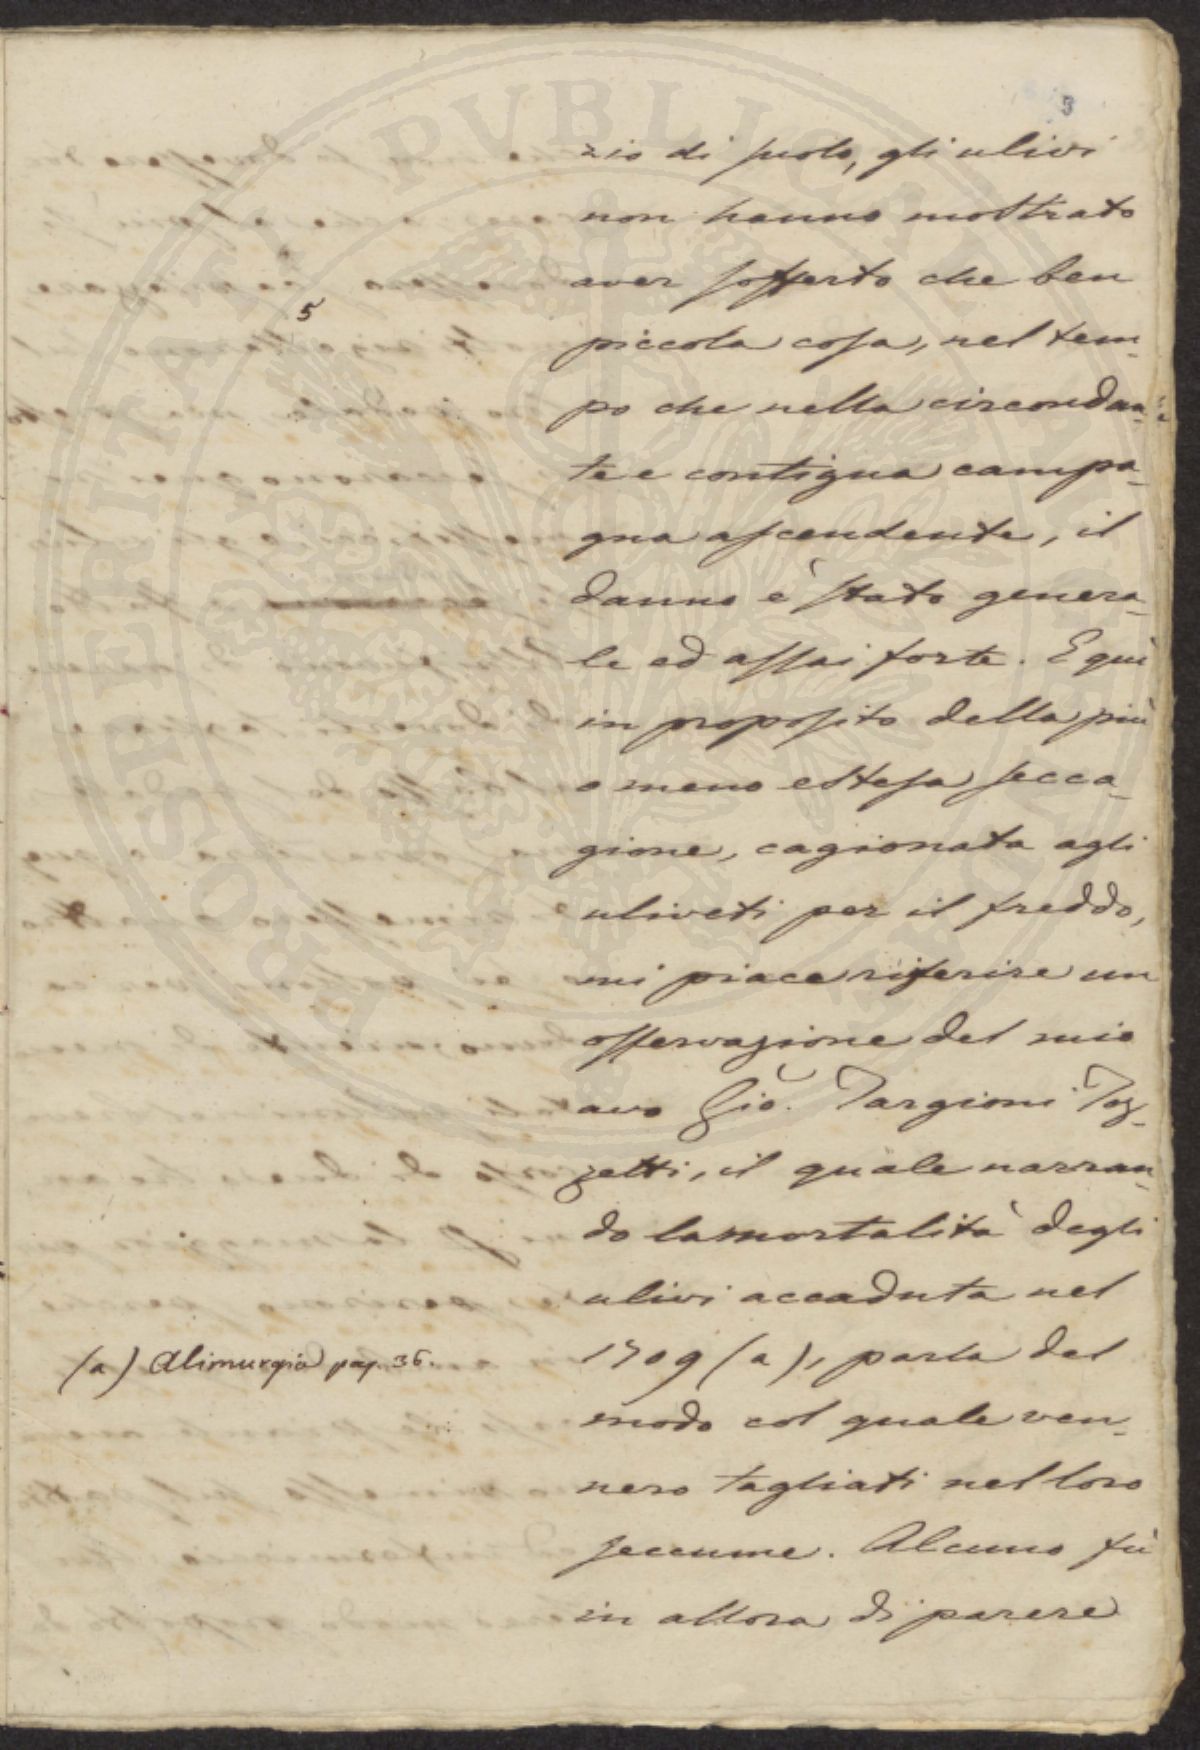 3
zio di suolo, gli ulivi
non hanno mostrato
aver sofferto che ben
5
piccola cosa, nel tem-
po che nella circondan-
te e contigua campa-
gna ascendente, il
danno è stato genera-
le ed assai forte. E quì
in proposito della più
o meno estesa secca-
gione, cagionata agli
uliveti per il freddo,
mi piace riferire un
osservazione del mio
avo Gio. Targioni Toz-
zetti, il quale narran-
do la mortalità degli
ulivi accaduta nel
1709 (a), parla del
(a) Alimurgia pag. 36.
modo col quale ven-
nero tagliati nel loro
seccume. Alcuno fù
in allora di parere
PROSPERITATI PVBLICAE